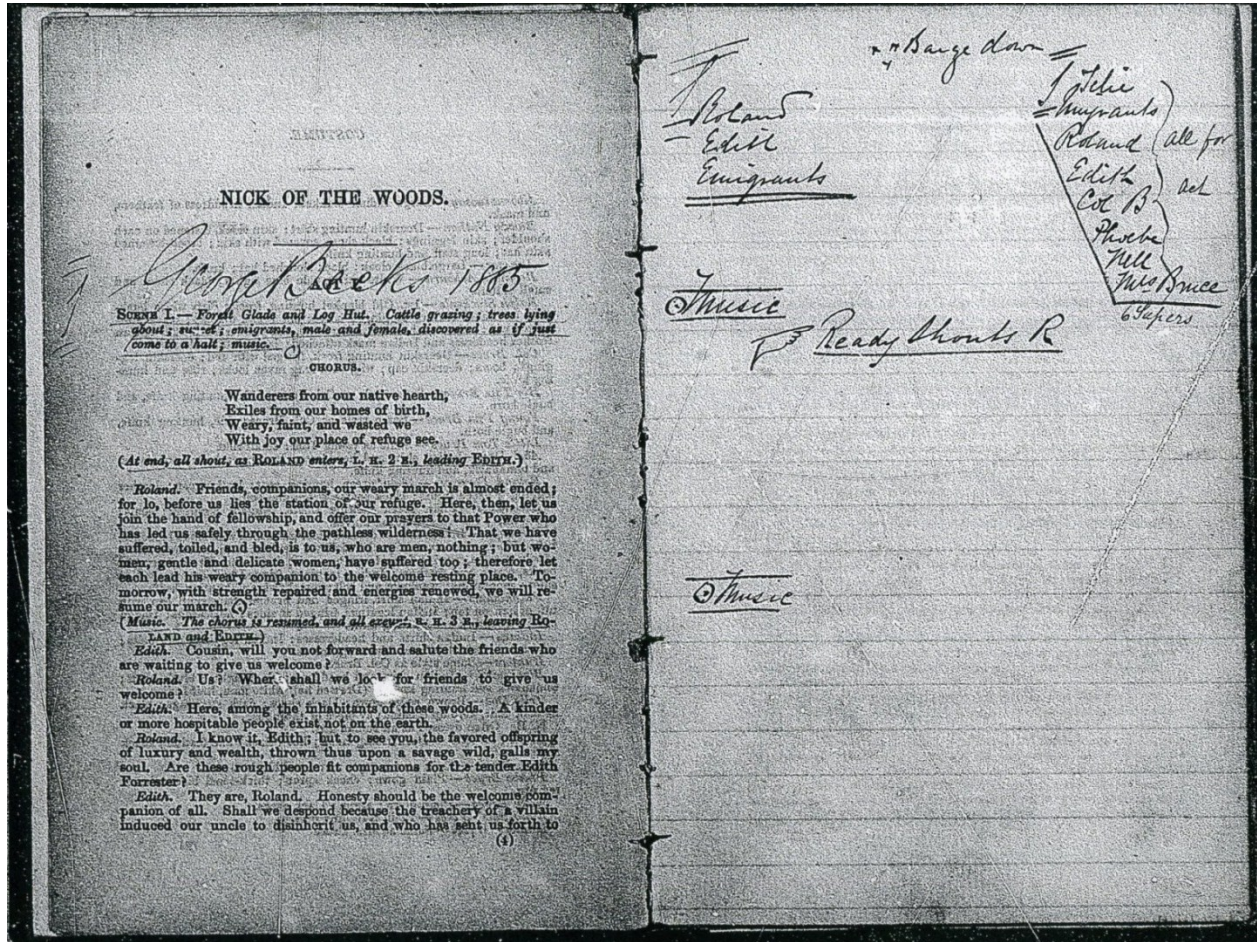 NICK OF THE WOODS.
George Becks 1885
SCENE I.—Forest Glade and Log Hut. Cattle grazing; trees lying
about; sunset; emigrants, male and female, discovered as if just
come to a halt; music.
CHORUS.
Wanderers from our native hearth,
Exiles from our homes of birth,
Weary, faint, and wasted we
With joy our place of refuge see.
(At end, all shout, as ROLAND enters, L. H. 2 E., leading EDITH.)
Roland. Friends, companions, our weary march is almost ended;
for lo, before us lies the station of our refuge. Here, then, let us
join the hand of fellowship, and offer our prayers to that Power who
has led us safely through the pathless wilderness! That we have
suffered, toiled, and bled, is to us, who are men, nothing; but wo-
men, gentle and delicate women, have suffered too; therefore let
each lead his weary companion to the welcome resting place. To-
morrow, with strength repaired and energies renewed, we will re-
sume our march.
(Music. The chorus is resumed, and all exeunt, R. H. 3 E., leaving RO-
LAND and EDITH.)
Edith. Cousin, will you not forward and salute the friends who
are waiting to give us welcome?
Roland. Us? Where shall we look for friends to give us
welcome?
Edith. Here, among the inhabitants of these woods. A kinder
or more hospitable people exist not on the earth.
Roland. I know it, Edith; but to see you, the favored offspring
of luxury and wealth, thrown thus upon a savage wild, galls my
soul. Are these rough people fit companions for the tender Edith
Forrester?
Edith. They are, Roland. Honesty should be the welcome com-
panion of all. Shall we despond because the treachery of a villain
induced our uncle to disinherit us, and who has sent us forth to
(4)
Barge down
Roland
Edith
Emigrants
Telie
Emigrants
Roland
Edith
Col B
Phoebe
Nell
Mrs Bruce
all for
act
6 Supers
Music
Ready Shouts R
Music